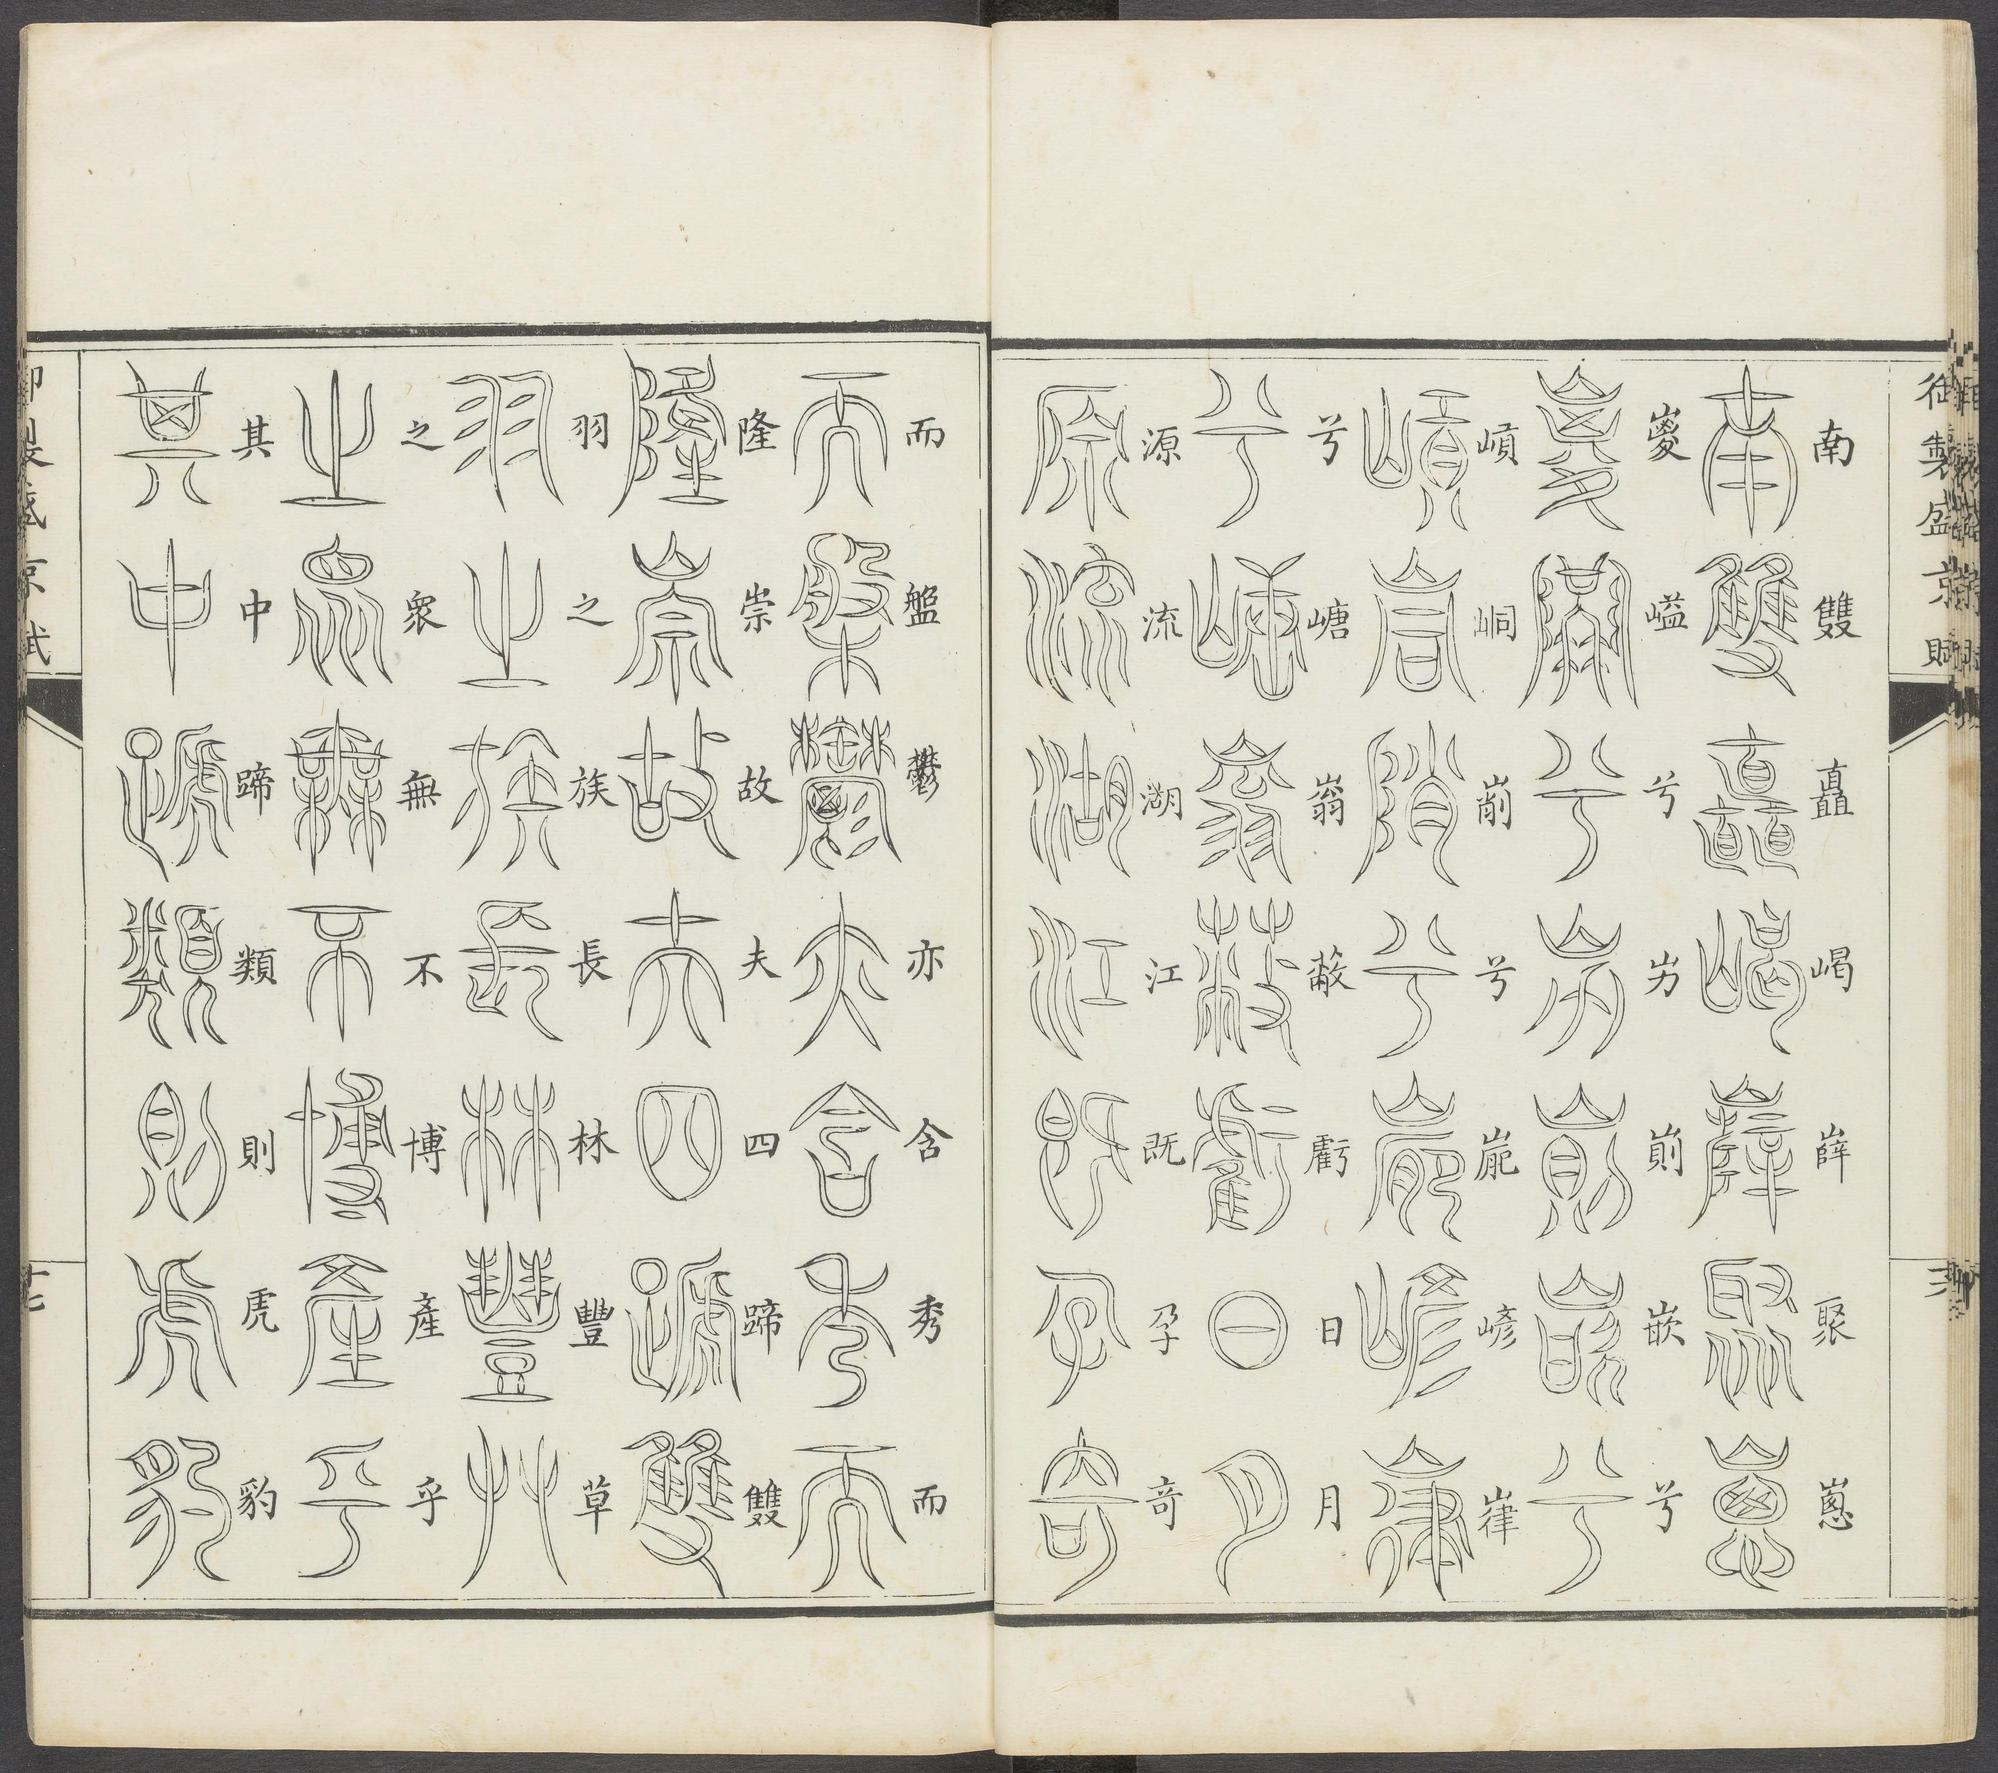 御製盛京賦
南雙矗嵑嶭聚
嵏兮屴崱嵌兮
嵿峒兮嵃嵂
兮嵣嵡蔽虧日月
源流湖江既孕奇
而盤鬱亦含秀而
隆崇故夫四蹄雙
羽之族長林豐草
之衆無不博產乎
其中蹄類則虎豹
御製盛京賦
十七